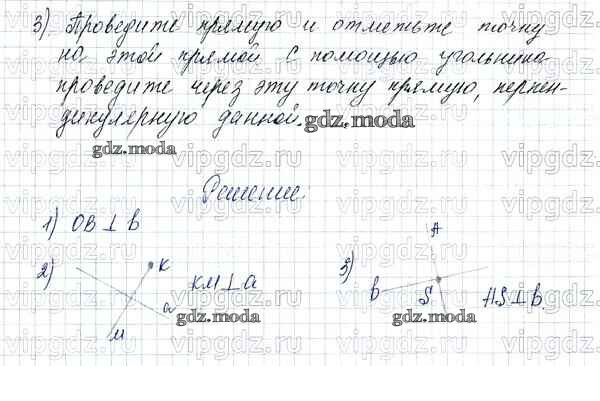 3) Проведите прямую и отметьте точку
на этой прямой. С помощью угольника
проведите через эту точку прямую, перпен-
дикулярную данной.
gdz.moda
gdz.moda
Решение:
1) OB ⊥ b
2)
K
KM ⊥ a
a
M
gdz.moda
3)
A
b
S
AS ⊥ b.
gdz.moda
vipgdz.ru